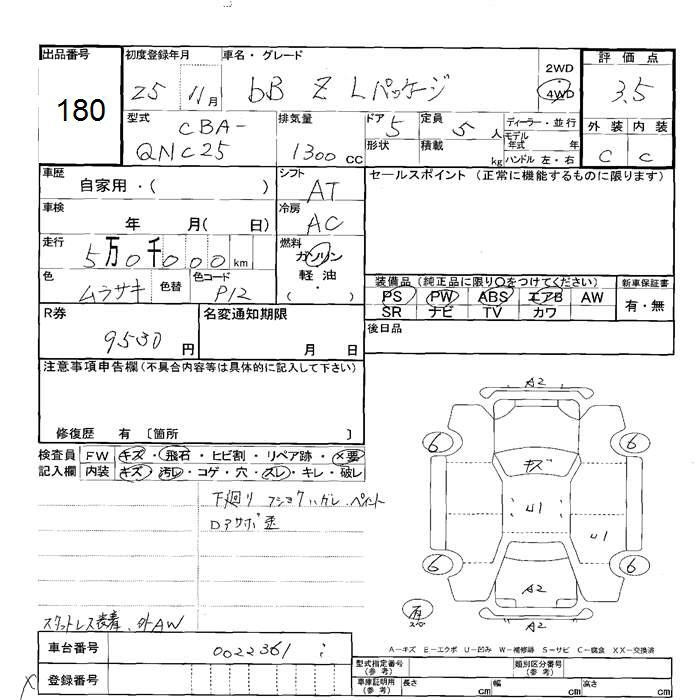 出品番号
180
初度登録年月
25 11月
車名・グレード
bB Z Lパッケージ
2WD
4WD
評価点
3.5
外装 内装
C C
型式
CBA-
QNC25
排気量
1300cc
ドア 5
形状
定員 5人
積載 kg
ディーラー・並行
モデル年式 年
ハンドル 左・右
車歴
自家用・( )
シフト
AT
セールスポイント (正常に機能するものに限ります)
車検
年 月( 日)
冷房
AC
走行
5万0千000km
燃料
ガソリン
軽油
( ・ )
色
ムラサキ
色替
色コード
P12
装備品(純正品に限り○をつけてください)
PS PW ABS エアB AW
SR ナビ TV カワ
新車保証書
有・無
R券
9530円
名変通知期限
月 日
後日品
注意事項申告欄(不具合内容等は具体的に記入して下さい)
修復歴 有 〔箇所 〕
検査員
記入欄
FW キズ・飛石・ヒビ割・リペア跡・×要
内装 キズ・汚レ・コゲ・穴・スレ・キレ・破レ
下廻り フショクハガレ・ペイント
スタットレス装着、外AW
A2
6 6
キズ
U1
U1
6 6
A2
A2
有
スペア
A-キズ E-エクボ U-凹み W-補修跡 S-サビ C-腐食 XX-交換済
車台番号
0022361
登録番号
型式指定番号
(参考)
類別区分番号
(参考)
車庫証明用
(参考)
長さ cm 幅 cm 高さ cm